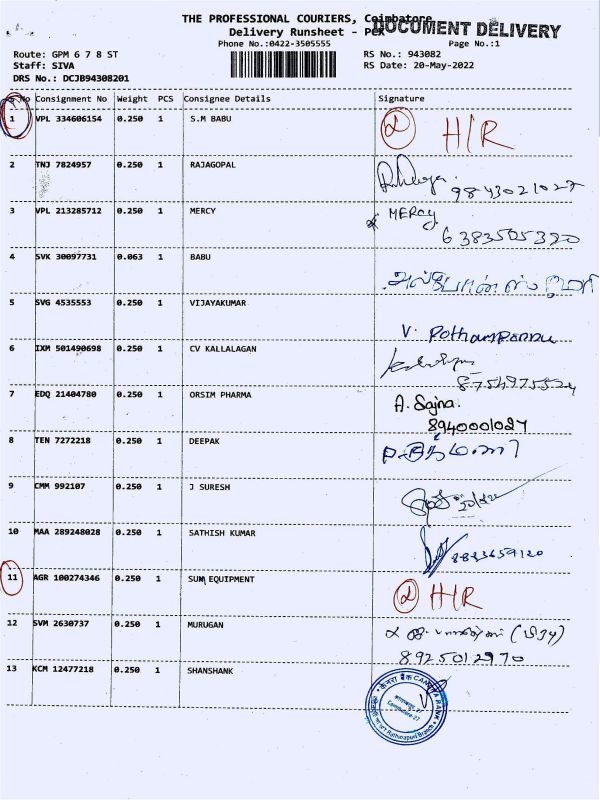 THE PROFESSIONAL COURIERS, Coimbatore
DOCUMENT DELIVERY
Delivery Runsheet - PCX
Phone No.:0422-3505555
Page No.:1
Route: GPM 6 7 8 ST
RS No.: 943082
Staff: SIVA
RS Date: 20-May-2022
DRS No.: DCJB94308201
S No Consignment No Weight PCS Consignee Details Signature
1 VPL 334606154 0.250 1 S.M BABU H/R
2 TNJ 7824957 0.250 1 RAJAGOPAL
9843021027
3 VPL 213285712 0.250 1 MERCY MERCY
6383505320
4 SVK 30097731 0.063 1 BABU
5 SVG 4535553 0.250 1 VIJAYAKUMAR
V.
6 IXM 501490698 0.250 1 CV KALLALAGAN
7 EDQ 21404780 0.250 1 ORSIM PHARMA A. Sajna.
8940001027
8 TEN 7272218 0.250 1 DEEPAK
9 CMM 992107 0.250 1 J SURESH
10 MAA 289248028 0.250 1 SATHISH KUMAR
11 AGR 100274346 0.250 1 SUM EQUIPMENT H/R
12 SVM 2630737 0.250 1 MURUGAN
8925012970
13 KCM 12477218 0.250 1 SHANSHANK
केनरा बैंक CANARA BANK